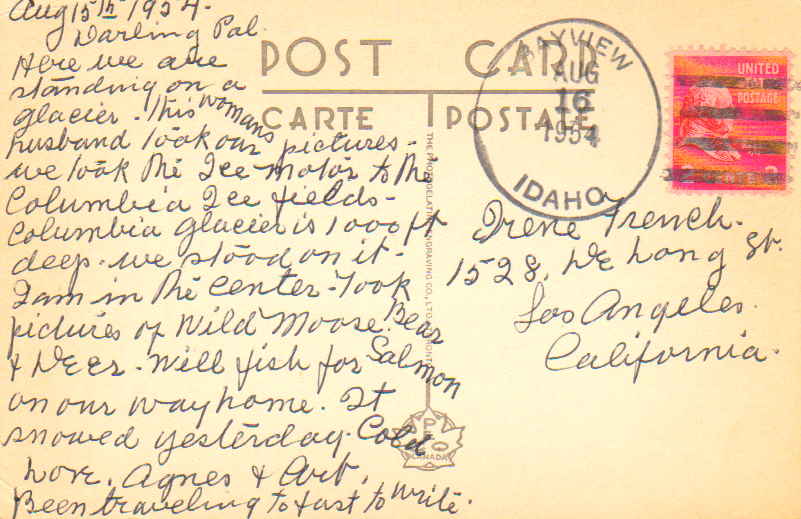 Aug 15th 1954.
Darling Pal.
Here we are
standing on a
glacier. This womans
husband took our pictures -
we took the Ice motor to the
Columbia Ice fields -
Columbia glacier is 1000 ft
deep. we stood on it -
I am in the center - Took
pictures of Wild Moose. Bear
& Deer. Will fish for Salmon
on our way home. It
snowed yesterday. Cold
Love, Agnes & Art.
Been traveling to fast to write.
POST CARD
CARTE POSTALE
THE PHOTOGELATINE ENGRAVING CO., LTD. TORONTO
PECO
CANADA
BAYVIEW
AUG
16
1954
IDAHO
UNITED
POSTAGE
Irene French.
1528, De Long St.
Los Angeles.
California.